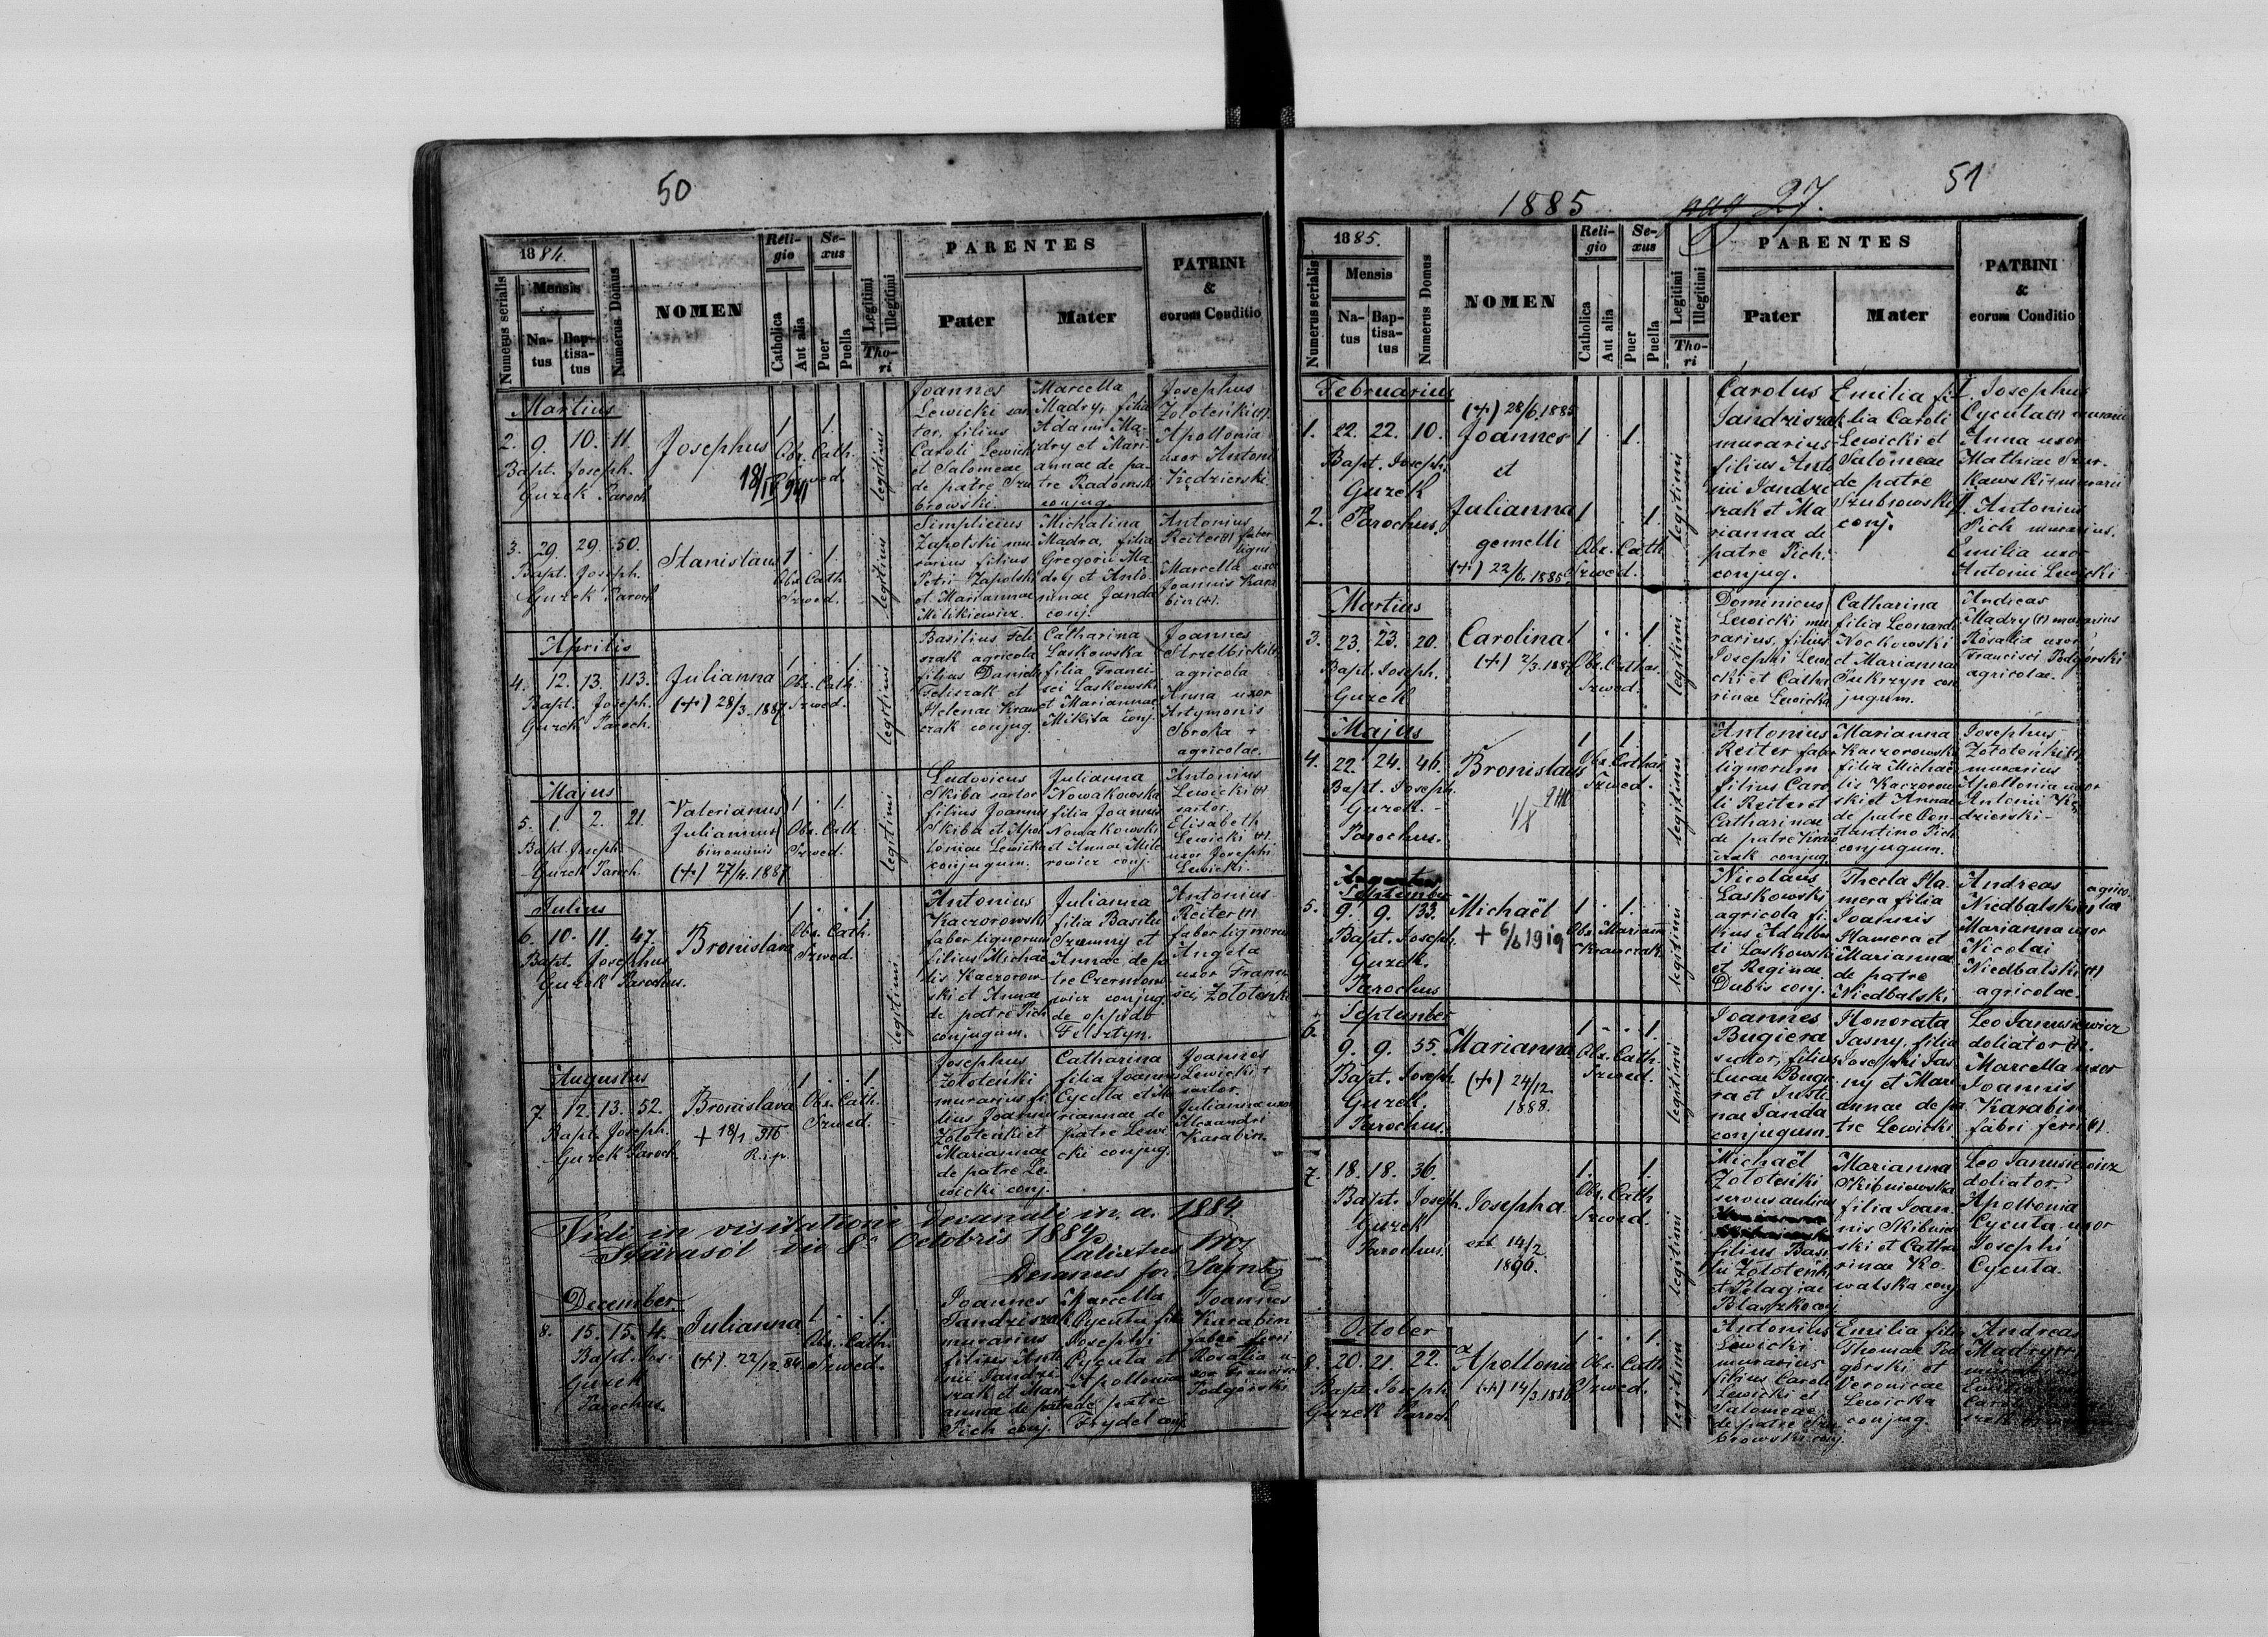 50
1884.
Numerus serialis
Mensis
Natus
Baptisatus
Numerus Domus
NOMEN
Religio
Catholica
Aut alia
Sexus
Puer
Puella
Legitimi
Illegitimi
Thori
PARENTES
Pater
Mater
PATRINI
&
eorum Conditio
Martius
2. 9. 10. 11.
Bapt. Joseph.
Guzek Paroch
Josephus
1 . 1.
Obs. Cath.
legitimi
Joannes
Lewicki sar
tor, filius
Caroli Lewicki
et Salomeae
de patre Szu
browski.
Marcella
Madry, filia
Adami Ma-
dry et Mari-
annae de pa-
tre Radomski
conjug.
Josephus
Zołoteńki (+).
Apollonia
uxor Antonii
Kędzierski
3. 29. 29. 50.
Bapt. Joseph.
Guzek Paroch
Stanislaus
1 . 1.
Obs. Cath.
Szwed.
legitimi
Simplicius
Zapolski mu-
rarius filius
Petri Zapolski
et Mariannae
Milikiewicz.
Michalina
Madra, filia
Gregorii Ma-
dry et Anto-
ninae Janda
conj.
Antonius
Reiter (+) faber
ligni
Marcella uxor
Joannis Kara
bin (+).
Aprilis
4. 12. 13. 113.
Bapt. Joseph.
Guzek Paroch.
Julianna
(+) 28/3. 1887
1 . . 1.
Obs. Cath.
Szwed.
legitimi
Basilius Feli
szak agricola
filius Danielis
Feliszak et
Helenae Kraw
czak conjug.
Catharina
Laskowska
filia Franci-
sci Laskowski
et Mariannae
Mikita conj.
Joannes
Strzelbicki (+)
agricola
Anna uxor
Artymonis
Sroka +
agricolae.
Majus
5. 1. 2. 21.
Bapt. Joseph
Guzek Paroch.
Valerianus
Julianus
binominis
(+) 27/4. 1887
1 . 1.
Obs. Cath.
Szwed.
legitimi
Ludovicus
Skiba sartor
filius Joannis
Skiba et Apol
loniae Lewicka
conjugum.
Julianna
Nowakowska
filia Joannis
Nowakowski
et Annae Mit
rowicz conj.
Antonius
Lewicki (+)
sartor.
Elisabeth
Lewicki (+).
uxor Josephi
Lewicki.
Julius
6. 10. 11. 47.
Bapt. Josephus
Guzek Parochus.
Bronislava
1 . . 1.
Obs. Cath.
Szwed.
legitimi
Antonius
Kaczorowski
faber lignorum
filius Michae
lis Kaczorow-
ski et Annae
de patre Pich
conjugum.
Julianna
filia Basilii
Szumny et
Annae de pa
tre Czermono
wicz conjug
de oppido
Felsztyn.
Antonius
Reiter (+)
faber lignorum
Angela
uxor Franci
sci Zołoteńki
Augustus
7. 12. 13. 52.
Bapt. Joseph.
Guzek Paroch.
Bronislava
+ 18/1 916
R.i.p.
1 . . 1.
Obs. Cath.
Szwed.
Josephus
Zołoteńki
murarius fi
lius Joannis
Zołoteńki et
Mariannae
de patre Le-
wicki conj.
Catharina
filia Joannis
Cycuta et Ma
riannae de
patre Lewi
cki conjug.
Joannes
Lewicki +
sartor.
Julianna uxor
Alexandri
Karabin.
Vidi in visitatione Decanali in. a. 1884
Starasól die 8a Octobris 1884.
Decanus for.
December
8. 15. 15. 4.
Bapt. Jos.
Guzek
Parochus.
Julianna
(+). 22/12 84.
1 . . 1.
Obs. Cath.
Szwed.
Joannes
Jandziszak
murarius
filius Anto
nii Jandzi-
szak et Mari
annae de patre
Pich conj.
Marcella
Cycuta filia
Josephi
Cycuta et
Apolloniae
de patre
Frydel conj.
Joannes
Karabin
faber ferri
Rosalia u-
xor Francisci
Podgórski
51
1885
pag 27.
1885.
Numerus serialis
Mensis
Natus
Baptisatus
Numerus Domus
NOMEN
Religio
Catholica
Aut alia
Sexus
Puer
Puella
Legitimi
Illegitimi
Thori
PARENTES
Pater
Mater
PATRINI
&
eorum Conditio
Februarius
1. 22. 22. 10.
Bapt. Joseph
Guzek
2. Parochus.
(+) 28/6. 1885
Joannes
et
Julianna
gemelli
(+) 22/6. 1885
1 . 1.
1 . . 1.
Obs. Cath.
Szwed.
legitimi
Carolus
Jandziszak
murarius
filius Anto
nii Jandzi
szak et Ma
rianna de
patre Pich.
conjug.
Emilia fi-
lia Caroli
Lewicki et
Salomeae
de patre
Szubrowski
conj.
1. Josephus
Cycuta (+) murarius
Anna uxor
Mathiae Szur-
kawski + murarii
2. Antonius
Pich murarius.
Emilia uxor
Antonii Lewicki
Martius
3. 23. 23. 20.
Bapt. Joseph.
Guzek
Carolina
(+) 2/3. 1887
1 . . 1.
Obs. Cathar.
Szwed.
legitimi
Dominicus
Lewicki mu
rarius, filius
Josephi Lewi
cki et Catha
rinae Lewicka
Catharina
filia Leonardi
Nockowski
et Marianna
Sukrzyn con
jugum.
Andreas
Madry (+) murarius
Rosalia uxor
Francisci Podgórski
agricolae.
Majus
4. 22. 24. 46.
Bapt. Joseph.
Guzek.
Parochus.
Bronislaus
1 . 1.
Obs. Cathar.
Szwed.
legitimi
Antonius
Reiter faber
lignorum
filius Caro
li Reiter et
Catharinae
de patre Kraw
czak conjug.
Marianna
Kaczorowski
filia Michae
lis Kaczorow
ski et Annae
de patre Con-
stantino Pich
conjugum.
Josephus
Zołoteńki (+)
murarius
Apollonia uxor
Antonii Kę
dzierski
September
5. 9. 9. 133.
Bapt. Joseph.
Guzek.
Parochus
Michaël
+ 6/6 1919
1 . 1.
Obs. Mariann
Krawczak
legitimi
Nicolaus
Laskowski
agricola fi-
lius Adalber
di Laskowski
et Reginae
Dubis conj.
Thecla Ha-
mera filia
Joannis
Hamera et
Mariannae
de patre
Niedbalski
Andreas agrico
Niedbalski (+) lae
Marianna uxor
Nicolai
Niedbalski (+)
agricolae.
September
6. 9. 9. 55.
Bapt. Joseph
Guzek.
Parochus.
Marianna
(+) 24/12.
1888.
1 . . 1.
Obs. Cath.
Szwed.
legitimi
Joannes
Bugiera
sutor, filius
Lucae Bugie
ra et Justi
nae Janda
conjugum.
Honorata
Jasny, filia
Josephi Jas
ny et Mari
annae de pa
tre Lewicki.
Leo Janusiewicz
doliator (+).
Marcella uxor
Joannis
Karabin
fabri ferri (+).
7. 18. 18. 36.
Bapt. Joseph.
Guzek
Parochus.
Josepha
ext 14/2
1896.
1 . . 1.
Obs. Cath
Szwed.
legitimi
Michaël
Zołoteńki
filius Basi
lii Zołoteńki
et Pelagiae
Blaszko conj
Marianna
Skibniewska
filia Joan-
nis Skibniew
ski et Catha
rinae Ko-
walska conj
Leo Janusiewicz
doliator.
Apollonia
Cycuta uxor
Josephi
Cycuta.
October
8. 20. 21. 22.
Bapt. Joseph.
Guzek Paroch
Apollonia
(+) 14/3. 1886
1 . . 1.
Obs. Cath.
Szwed.
legitimi
Antonius
Lewicki
murarius
filius Caroli
Lewicki et
Salomeae
de patre Szu
browski conj.
Emilia filia
Thomae Pod
górski et
Veronicae
Lewicka
conjug.
Andreas
Madry (+)